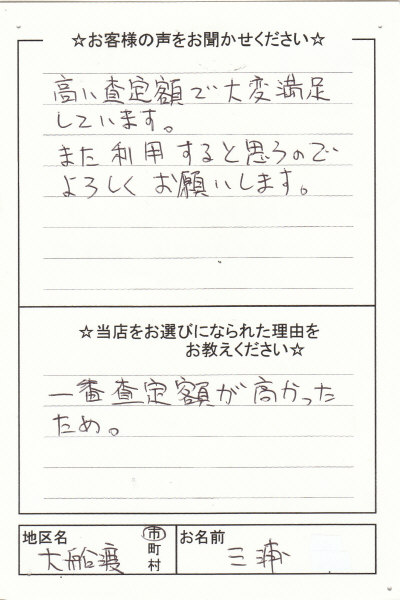 ☆お客様の声をお聞かせください☆
高い査定額で大変満足
しています。
また利用すると思うので
よろしくお願いします。
☆当店をお選びになられた理由を
お教えください☆
一番査定額が高かった
ため。
地区名
大船渡
市
町
村
お名前
三浦